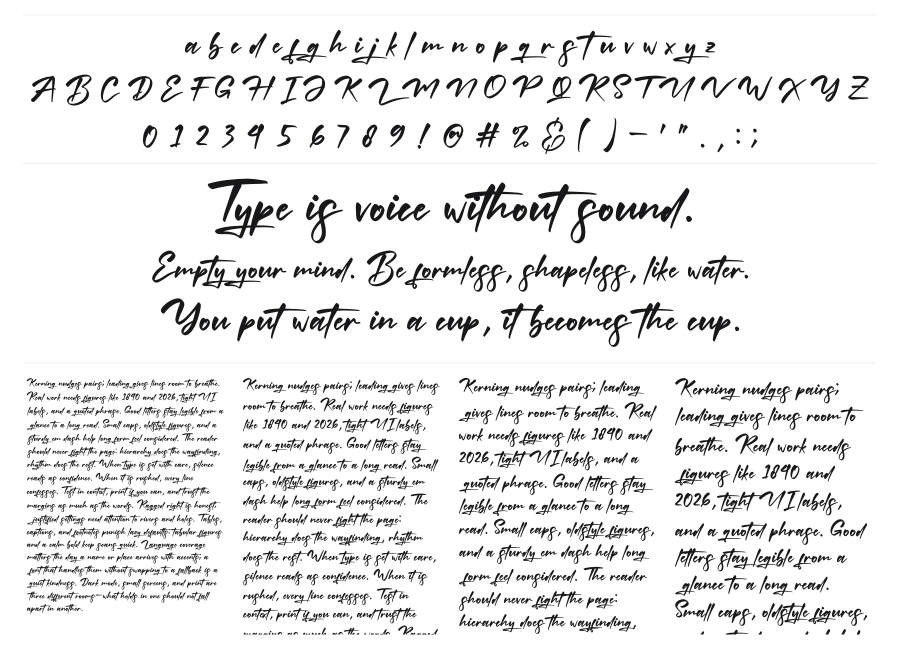 a b c d e f g h i j k l m n o p q r s t u v w x y z
A B C D E F G H I J K L M N O P Q R S T U V W X Y Z
0 1 2 3 4 5 6 7 8 9 ! @ # % & ( ) – ' " . , : ;
Type is voice without sound.
Empty your mind. Be formless, shapeless, like water.
You put water in a cup, it becomes the cup.
Kerning nudges pairs; leading gives lines room to breathe.
Real work needs figures like 1890 and 2026, tight UI
labels, and a quoted phrase. Good letters stay legible from a
glance to a long read. Small caps, oldstyle figures, and a
sturdy em dash help long form feel considered. The reader
should never fight the page: hierarchy does the wayfinding,
rhythm does the rest. When type is set with care, silence
reads as confidence. When it is rushed, every line
confesses. Test in context, print if you can, and trust the
margins as much as the words. Ragged right is honest,
justified settings need attention to rivers and holes. Tables,
captions, and footnotes punish lazy defaults; tabular figures
and a calm bold keep scans quick. Language coverage
matters the day a name or place arrives with accents; a
font that handles them without swapping to a fallback is a
quiet kindness. Dark mode, small screens, and print are
three different rooms—what holds in one should not fall
apart in another.
Kerning nudges pairs; leading gives lines
room to breathe. Real work needs figures
like 1890 and 2026, tight UI labels,
and a quoted phrase. Good letters stay
legible from a glance to a long read. Small
caps, oldstyle figures, and a sturdy em
dash help long form feel considered. The
reader should never fight the page:
hierarchy does the wayfinding, rhythm
does the rest. When type is set with care,
silence reads as confidence. When it is
rushed, every line confesses. Test in
context, print if you can, and trust the
margins as much as the words. Ragged
Kerning nudges pairs; leading
gives lines room to breathe. Real
work needs figures like 1890 and
2026, tight UI labels, and a
quoted phrase. Good letters stay
legible from a glance to a long
read. Small caps, oldstyle figures,
and a sturdy em dash help long
form feel considered. The reader
should never fight the page:
hierarchy does the wayfinding,
Kerning nudges pairs;
leading gives lines room to
breathe. Real work needs
figures like 1890 and
2026, tight UI labels,
and a quoted phrase. Good
letters stay legible from a
glance to a long read.
Small caps, oldstyle figures,